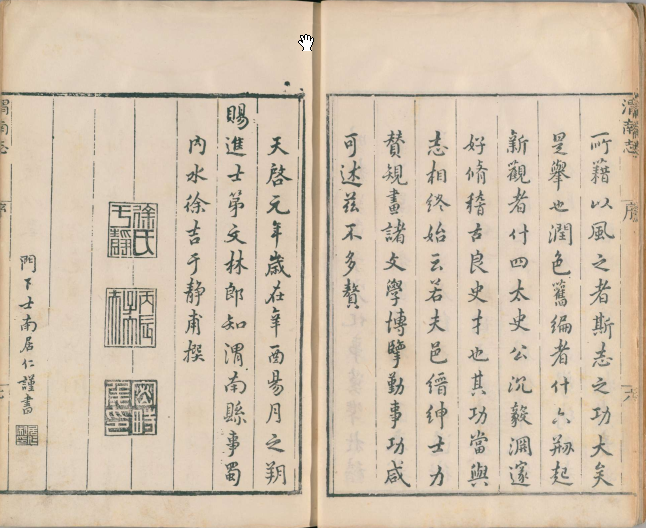 渭南志
序
六
所藉以風之者斯志之功大矣
是舉也潤色舊編者什六刱起
新觀者什四太史公沉毅淵邃
好脩稽古良史才也其功當與
志相終始云若夫邑縉紳士力
賛規畫諸文學博擥勤事功咸
可述兹不多贅
天啓元年歲在辛酉昜月之朔
賜進士第文林郎知渭南縣事蜀
内水徐吉于靜甫撰
徐氏于靜
門下士南居仁謹書
渭南志
序